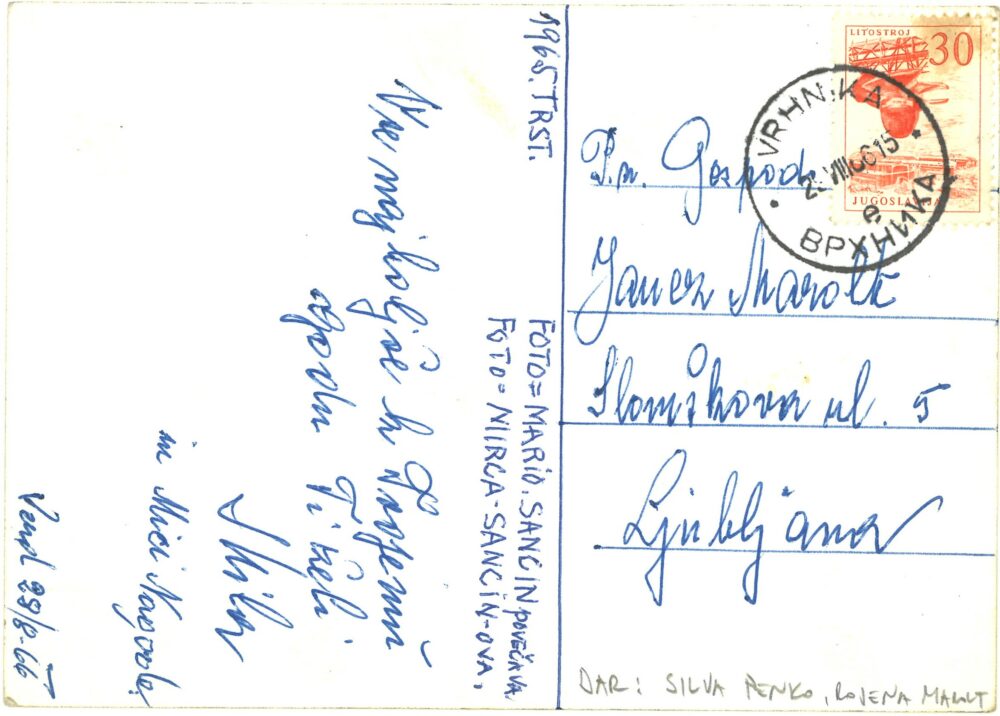 1965. TRST.
FOTO=MARIO. SANCIN POVEČAVA
FOTO=MIRCA-SANCIN-OVA,
Vse najboljše k Tvojemu
godu Ti želi
Mila
in Mici Nagode.
28/8-66
P.n. Gospod
Janez Marolt
Slomškova ul. 5
Ljubljana
LITOSTROJ
30
JUGOSLAVIJA
VRHNIKA
VIII 66 15
e
ВРХНИКА
DAR: SILVA PENKO, ROJENA MAROLT